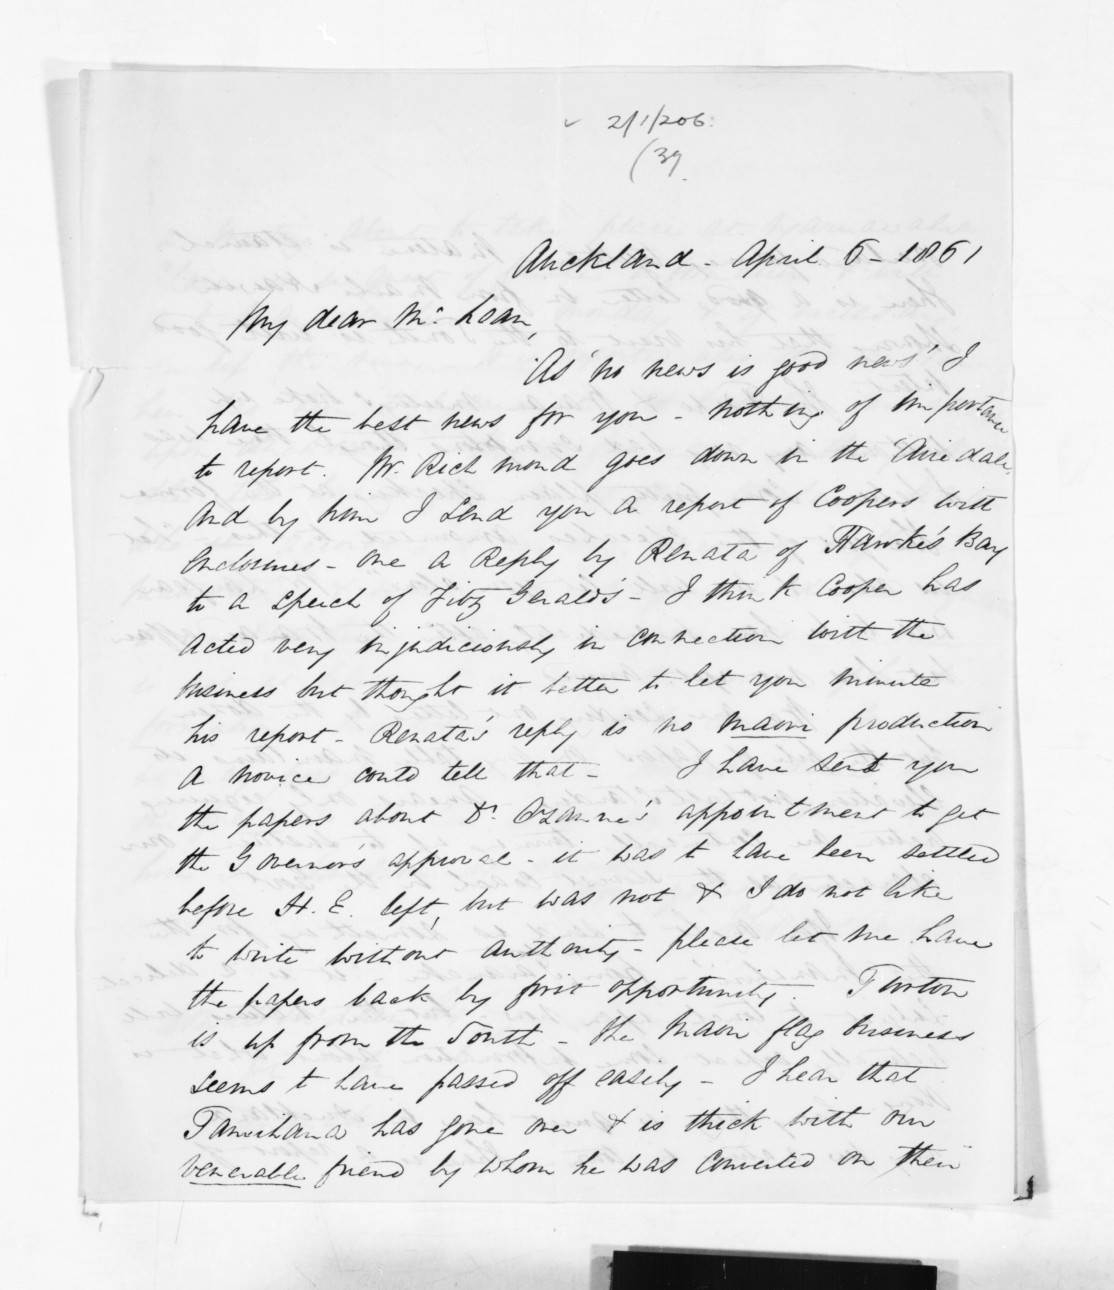 2/1/206.
(39.
Auckland - April 6 - 1861
My dear Mc Lean,
"As 'no news is good news' I
have the best news for you - nothing of importance
to report. Mr. Richmond goes down in the "Airedale"
and by him I send you a report of Coopers with
Enclosures - one a Reply by Renata of Hawke's Bay
to a speech of Fitz Gerald's - I think Cooper has
acted very injudiciously in connection with the
business but thought it better to let you minute
his report - Renata's reply is no maori production
a novice could tell that - I have sent you
the papers about Dr. Ozanne's appointment to get
the Governor's approval - it was to have been settled
before H. E. left, but was not & I do not like
to write without authority - please let me have
the papers back by first opportunity. Turton
is up from the South - The Maori flag business
seems to have passed off easily - I hear that
Tamihana has gone over & is thick with our
venerable friend by whom he was converted on their